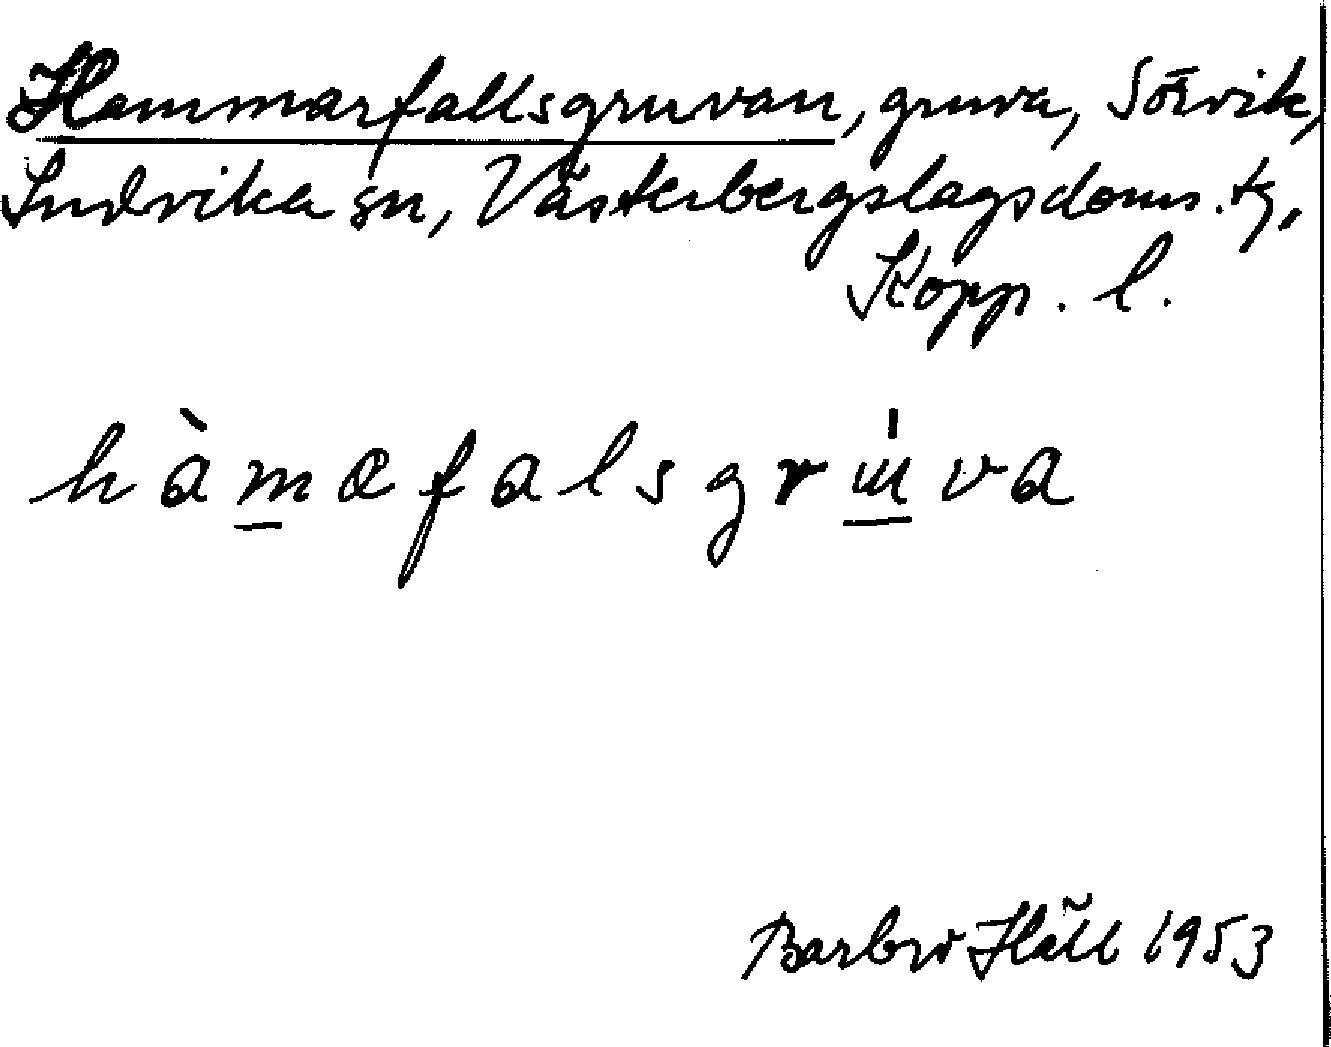 Hammarfallsgruvan, gruva, Sörvik,
Ludvika sn, Västerbergslagsdoms. tg,
Kopp. l.
Barbro Häll 1953